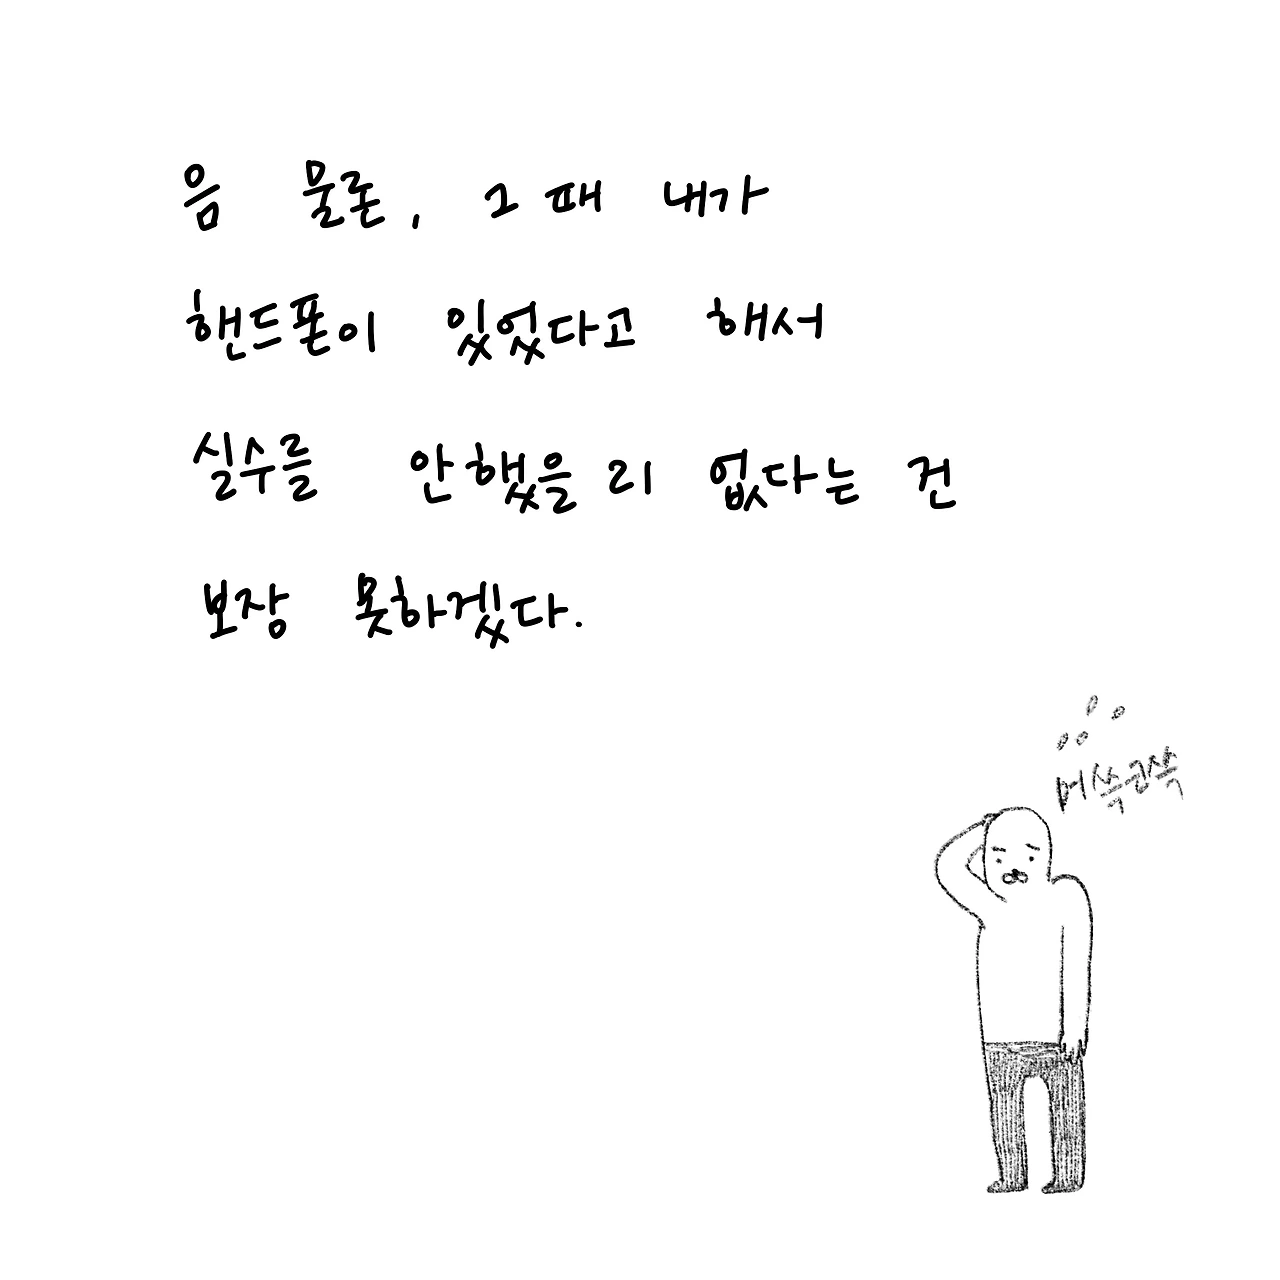 음 물론, 그 때 내가
핸드폰이 있었다고 해서
실수를 안했을 리 없다는 건
보장 못하겠다.
머쓱코쓱